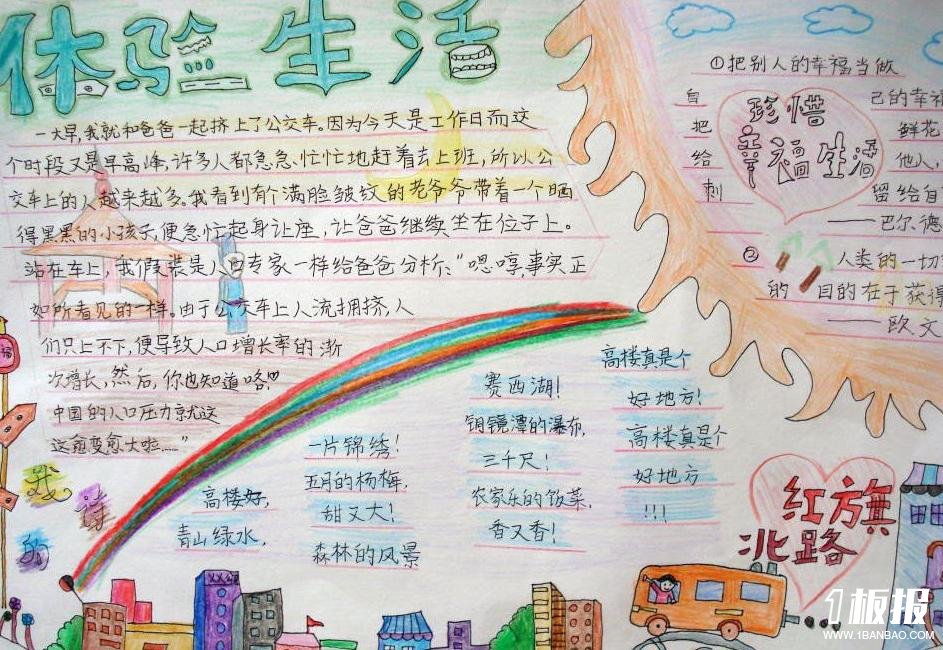 体验生活
一大早,我就和爸爸一起挤上了公交车。因为今天是工作日而这
个时段又是早高峰,许多人都急急忙忙地赶着去上班,所以公
交车上的人越来越多。我看到有个满脸皱纹的老爷爷带着一个晒
得黑黑的小孩子,便急忙起身让座,让爸爸继续坐在位子上。
站在车上,我假装是人口专家一样给爸爸分析:“嗯哼,事实正
如所看见的一样。由于公交车上人流拥挤,人
们只上不下,便导致人口增长率的渐
次增长,然后,你也知道咯!
中国的人口压力就这
这愈变愈大啦……”
我
的
诗
高楼好,
青山绿水,
一片锦绣!
五月的杨梅,
甜又大!
森林的风景
赛西湖!
钥镜潭的瀑布,
三千尺!
农家乐的饭菜,
香又香!
高楼真是个
好地方!
高楼真是个
好地方
!!!
①把别人的幸福当做
自己的幸福
把鲜花
给他人,
刺留给自
——巴尔德
珍惜
幸福生活
②人类的一切
的目的在于获得
——欧文
红旗
北路
1板报
WWW.1BANBAO.COM